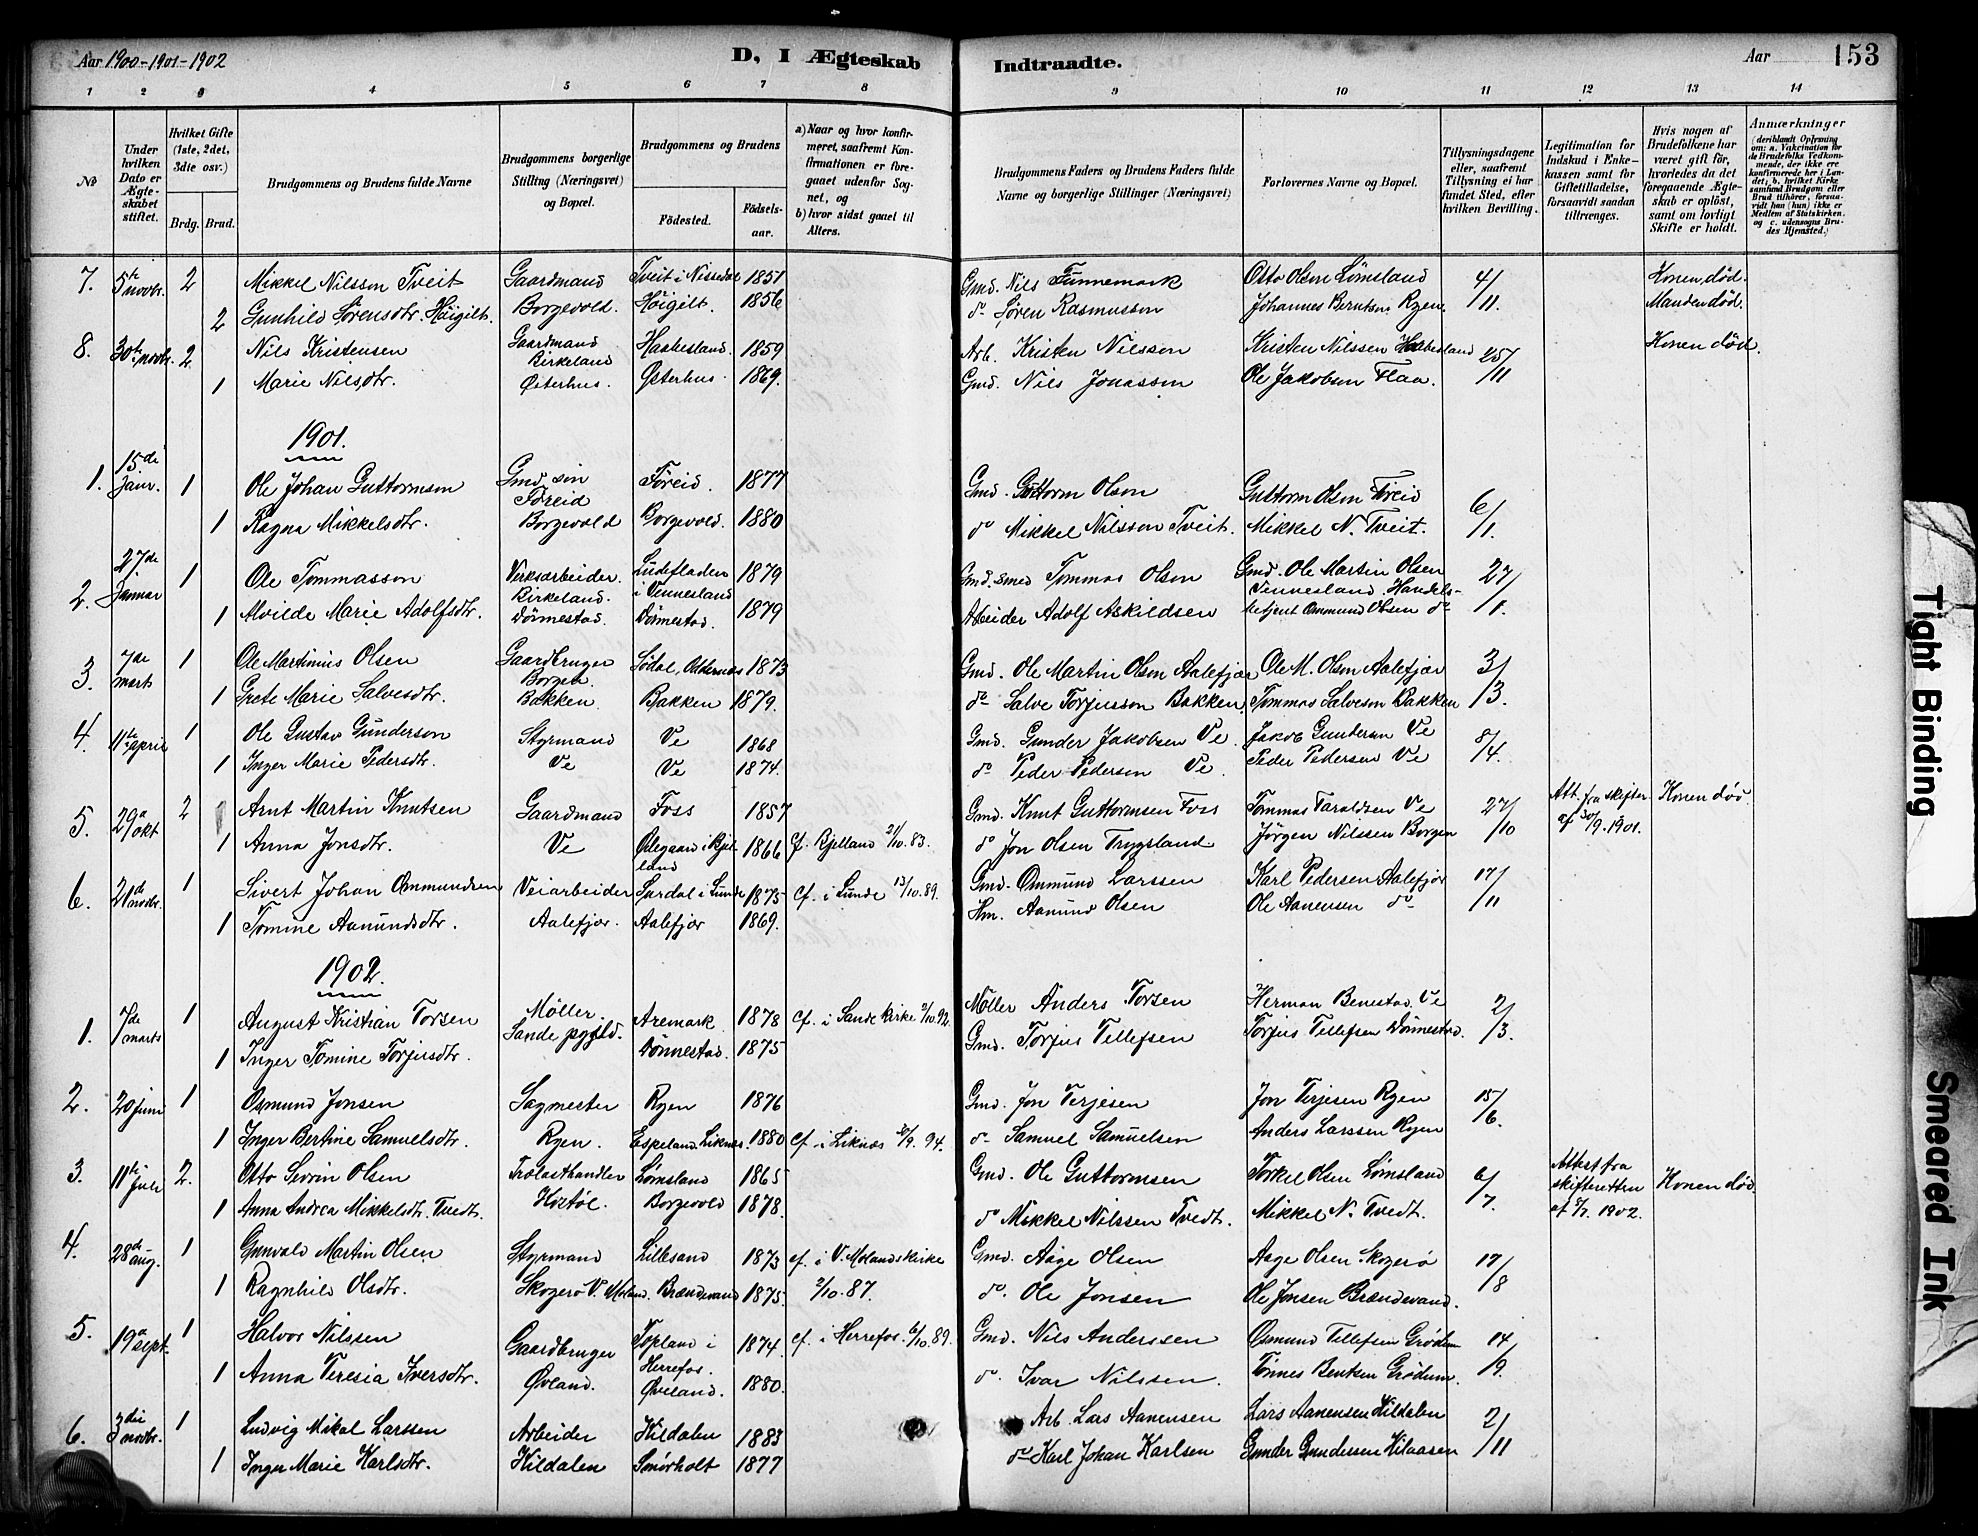 Aar 1900-1901-1902
D, I Ægteskab Indtraadte.
Aar 153
1 2 3 4 5 6 7 8 9 10 11 12 13 14
No
Under hvilken Dato er Ægteskabet stiftet.
Hvilket Gifte (1ste, 2det, 3die osv.)
Brdg. Brud.
Brudgommens og Brudens fulde Navne
Brudgommens borgerlige Stilling (Næringsvei) og Bopæl.
Brudgommens og Brudens
Fødested. Fødselsaar.
a) Naar og hvor konfirmeret, saafremt Konfirmationen er foregaaet udenfor Sognet, og
b) hvor sidst gaaet til Alters.
Brudgommens Faders og Brudens Faders fulde Navne og borgerlige Stillinger (Næringsvei)
Forlovernes Navne og Bopæl.
Tillysningsdagene eller, saafremt Tillysning ei har fundet Sted, efter hvilken Bevilling.
Legitimation for Indskud i Enkekassen samt for Giftetilladelse, forsaavidt saadan tiltrænges.
Hvis nogen af Brudefolkene har været gift før, hvorledes da det foregaaende Ægteskab er opløst, samt om lovligt Skifte er holdt.
Anmærkninger (deriblandt Oplysning om: a. Vakcination for de Brudefolks Vedkommende, der ikke ere konfirmerede her i Landet, b. hvilket Kirkesamfund Brudgom eller Brud tilhører, forsaavidt han (hun) ikke er Medlem af Statskirken, og c. udensogns Brudes Hjemsted.)
7. 5te novbr. 2 Mikkel Nilsson Tveit Gaardmand Tveit i Nissedal 1851 Gmd. Nils Finnemark Otto Olsen Lömsland 4/11 Konen død.
2 Gunhild Sörensdtr. Höigilt. Borgevold. Höigilt. 1856 do Sören Rasmusson Johannes Berntsen Ryen. Manden død.
8. 30te novbr. 2 Nils Kristensen Gaardmand Birkeland Haabesland. 1859 Arb. Kristen Nilsson Kristen Nilssen Haabesland 25/11 Konen død.
1 Marie Nilsdtr. Østerhus. Østerhus. 1869. Gmd. Nils Jonasson Ole Jakobsen Flaa.
1901.
1. 15de Janr. 1 Ole Johan Guttormson Gmd. sön Föreid Föreid. 1877 Gmd. Guttorm Olson Guttorm Olson Föreid 6/1.
1 Ragna Mikkelsdtr. Borgevold Borgevold. 1880 do Mikkel Nilsson Tveit. Mikkel N. Tveit.
2. 27de Januar 1 Ole Tommasson Verksarbeider. Birkeland. Ludefladen i Vennesland 1879 Gmd. smed Tommas Olson Gmd. Ole Martin Olsen Vennesland. Handels- 27/1.
1 Alvilde Marie Adolfsdtr. Dönnestad. Dönnestad. 1879 Arbeider Adolf Askildsen betjent Ommund Olsen do
3. 7de marts 1 Ole Martinius Olsen Gaardbruger Borgen. Södal, Oddernes 1873 Gmd. Ole Martin Olson Aalefjær Ole M. Olson Aalefjær 3/3.
1 Grete Marie Salvesdtr. Bakken. Bakken 1879. do Salve Torjusson Bakken. Tommas Salveson Bakken
4. 11te april 1 Ole Gustav Gunderson Styrmand Ve 1868 Gmd. Gunder Jakobsen Ve. Jakob Gunderson Ve 8/4.
1 Inger Marie Pedersdtr. Ve Ve 1874. do Peder Pedersen Ve. Peder Pedersen Ve
5. 29a okt 2 Arnt Martin Knutsen Gaardmand Foss 1857 Gmd. Knut Guttormsen Foss Tommas Taraldsen Ve 27/10 Att. fra skifter. af 30/9.1901. Konen död.
1 Anna Jonsdtr. Ve Ødegaard i Bjelland 1866 cf. Bjelland 21/10.83. do Jon Olsen Trygsland. Jørgen Nilssen Borgen
6. 21de novbr. 1 Sivert Johan Ommundsen Veiarbeider Sardal i Lunde 1875 cf. i Lunde 13/10.89. Gmd. Ommund Larssen Karl Pedersen Aalefjær 17/11
1 Tomine Aanundsdtr. Aalefjær. Aalefjær 1869. Hm. Aanund Olsen Ole Aanensen do
1902.
1. 7de marts 1 August Kristian Torsen Möller. Aremark. 1878 cf. i Sande kirke 2/10.92. Möller Anders Torsen Herman Benestad. Ve 2/3.
1 Inger Tomine Torjusdtr. Sande pgjld. Dönnestad. 1875 Gmd. Torjus Tellefsen Torjus Tellefsen Dönnestad.
2. 20 juni 1 Osmund Jonsen Sagmester Ryen 1876 Gmd. Jon Terjesen Jon Terjesen Ryen 15/6.
1 Inger Bertine Samuelsdtr. Ryen. Espeland Liknes. 1880 cf. i Liknes 30/9. 94. do Samuel Samuelsen Anders Larssen Ryen
3. 11te juli 2. Otto Severin Olsen Trælasthandler Lömsland 1865 Gmd. Ole Guttormsen Torkel Olsen Lömsland 6/7. Attest fra skifteretten af 8/7. 1902. Konen død.
1 Anna Andrea Mikkelsdtr. Tvedt. Borgevold 1878. do Mikkel Nilssen Tvedt. Mikkel N. Tvedt.
4. 28de aug. 1 Gunvald Martin Olsen Styrmand Lillesand 1873 cf. i V. Molands kirke Gmd. Aage Olsen Aage Olsen Skogerö 17/8
1 Ragnhild Olsdtr. Skogerö V. Moland. Brændevand 1875. 2/10. 87. do. Ole Jonsen Ole Jonsen Brændevand.
5. 19a sept. 1 Halvor Nilssen Gaardbruger Topland i Herrefos. 1874. cf. i Herrefos. 6/10.89. Gmd. Nils Anderssen Osmund Tellefsen Grödum 14/9.
1 Anna Teresia Iversdtr. Øvland. Øveland. 1880. do. Ivar Nilssen. Tönnes Bentsen Grödum.
6. 3die novbr. 1 Ludvig Mikal Larssen Arbeider Kildalen 1883 Arb. Lars Aanensen Lars Aanensen Kildalen 2/11
1 Inger Marie Karlsdtr. Kildalen Smörholt 1877 do Karl Johan Karlsen Gunder Gundersen Kilaasen
Tight Binding
Smeared Ink